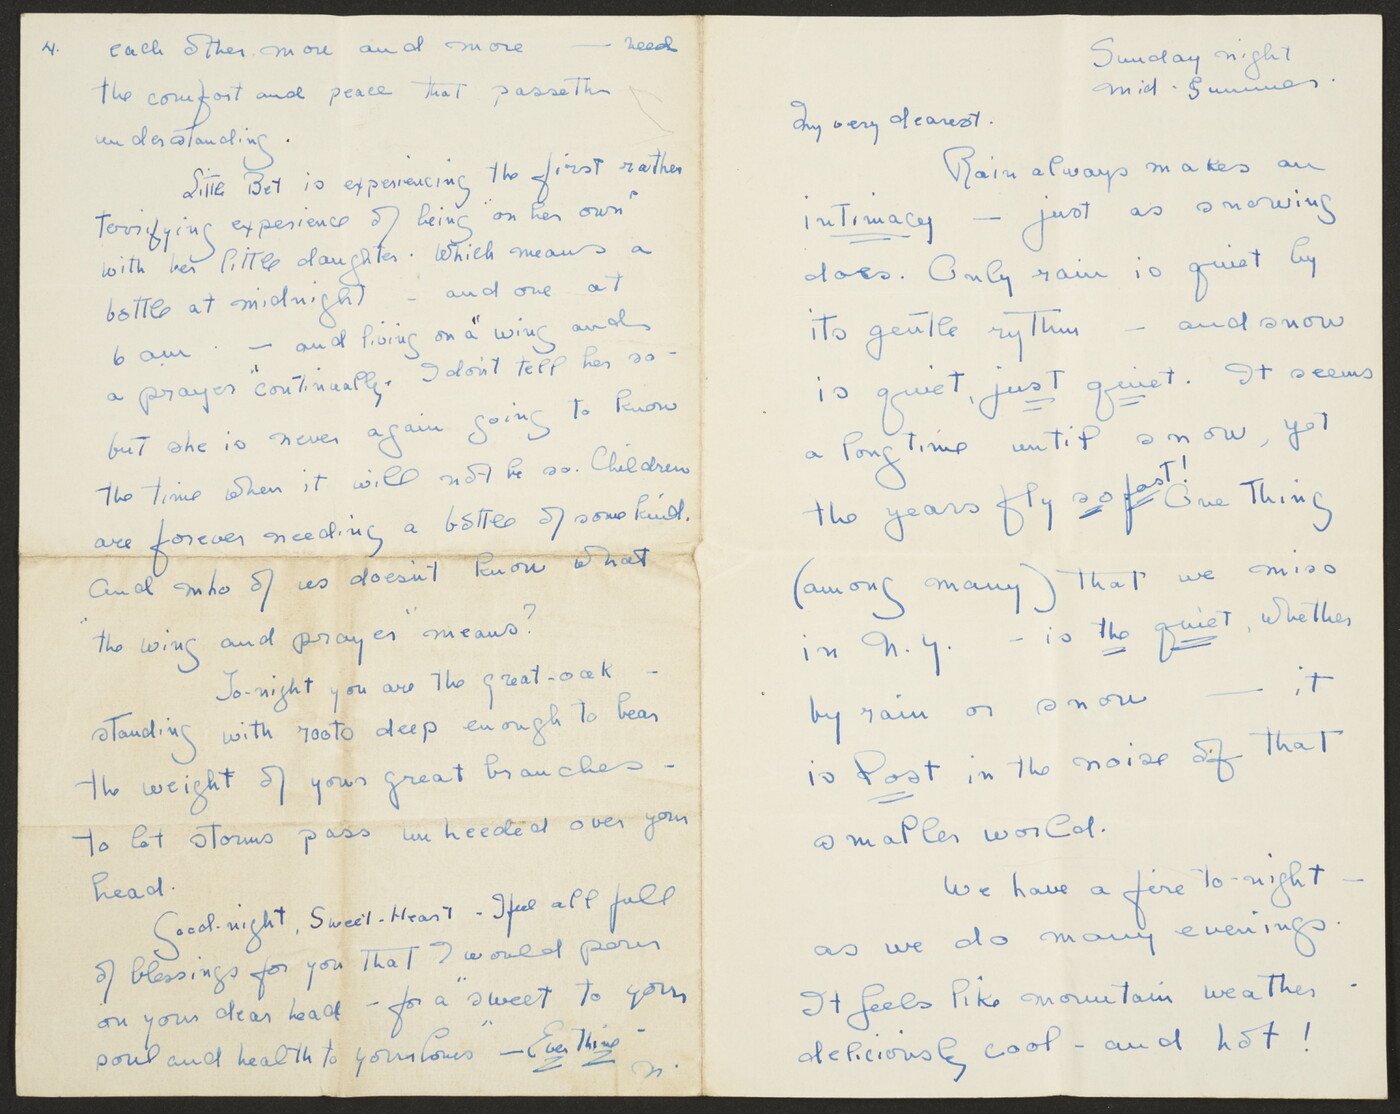 Sunday night
mid-summer.
My very dearest.
Rain always makes an
intimacy — just as snowing
does. Only rain is quiet by
its gentle rythm — and snow
is quiet, just quiet. It seems
a long time until snow, yet
the years fly so fast! One thing
(among many) that we miss
in N.Y. - is the quiet, whether
by rain or snow — it
is lost in the noise of that
smaller world.
We have a fire to-night —
as we do many evenings.
It feels like mountain weather -
deliciously cool - and hot!
4.
each other more and more — need
the comfort and peace that passeth
understanding.
Little Bet is experiencing the first rather
terrifying experience of being "on her own"
with her little daughter. Which means a
bottle at midnight - and one at
6 am. — and living on a "wing and
a prayer" continually. I don't tell her so -
but she is never again going to know
the time when it will not be so. Children
are forever needing a bottle of some kind.
And who of us doesn't know what
"the wing and prayer" means?
To-night you are the great-oak —
standing with roots deep enough to bear
the weight of your great branches -
to let storms pass unheeded over your
head.
Good-night, Sweet-Heart - I feel all full
of blessings for you that I would pour
on your dear head - for a "sweet to your
soul and health to your bones" — Ever Thine -
N.